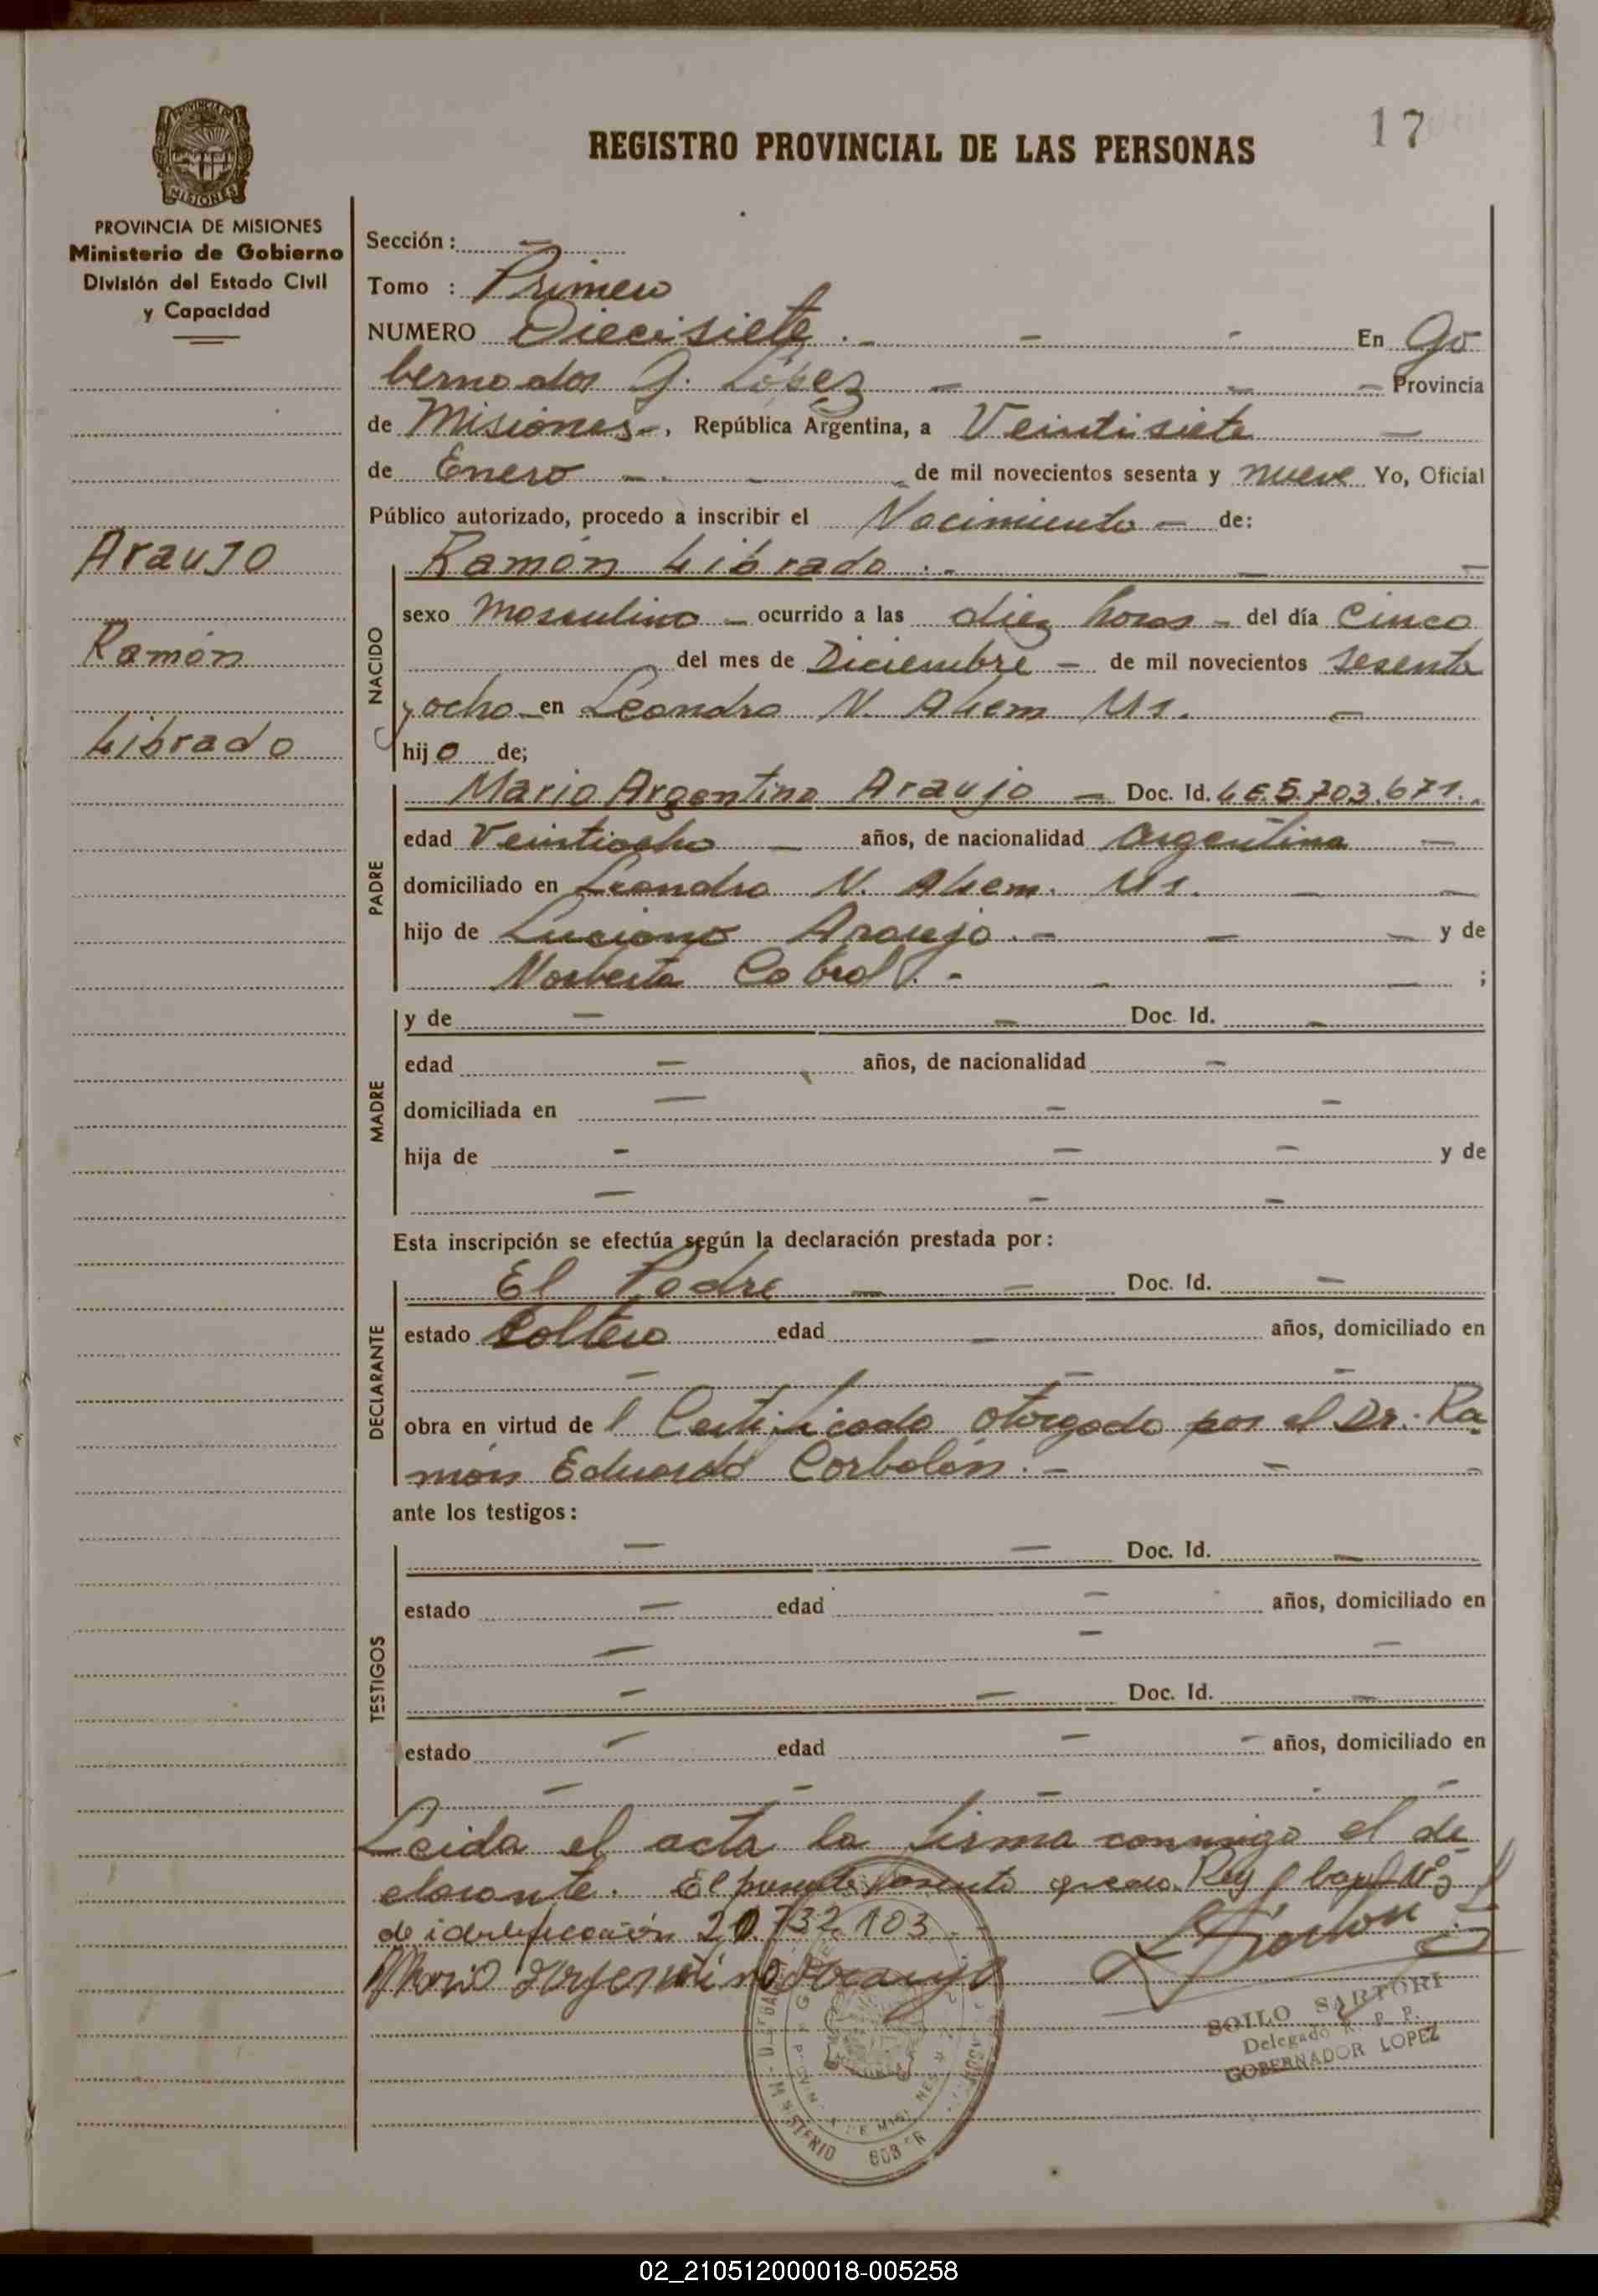 17
REGISTRO PROVINCIAL DE LAS PERSONAS
PROVINCIA DE MISIONES
Ministerio de Gobierno
División del Estado Civil
y Capacidad
Araujo
Ramón
Librado
Sección : —
Tomo : Primero
NUMERO Diecisiete . - — - En Go
bernador G. López — — — Provincia
de Misiones -, República Argentina, a Veintisiete —
de Enero — . - de mil novecientos sesenta y nueve Yo, Oficial
Público autorizado, procedo a inscribir el Nacimiento — de:
NACIDO
Ramón Librado . - — —
sexo Masculino — ocurrido a las diez horas — del día Cinco
del mes de Diciembre — de mil novecientos sesenta
y ocho — en Leandro N. Alem Ms. —
hijo de;
PADRE
Mario Argentino Araujo — Doc. Id. L E. 5.703.671.
edad Veintiocho — años, de nacionalidad Argentina —
domiciliado en Leandro N. Alem. Ms. — —
hijo de Luciano Araujo . - — — y de
Norberta Cabral . - — — ;
MADRE
y de — — Doc. Id. —
edad — años, de nacionalidad —
domiciliada en — — —
hija de — — — y de
— — —
Esta inscripción se efectúa según la declaración prestada por :
DECLARANTE
El Padre — — Doc. Id. —
estado Soltero edad — años, domiciliado en
— — —
obra en virtud de l Certificado otorgado por el Dr. Ra
món Eduardo Corbalán . - — —
ante los testigos :
TESTIGOS
— — Doc. Id. —
estado — edad — años, domiciliado en
— — —
— — Doc. Id. —
estado — edad — — años, domiciliado en
— — — —
Leida el acta la firma conmigo el de
clarante. El presente bajo Nº
de identificación 20.732.103 - -
Mario Argentino Araujo
SOILO SARTORI
Delegado R. P. P.
GOBERNADOR LOPEZ
02_210512000018-005258